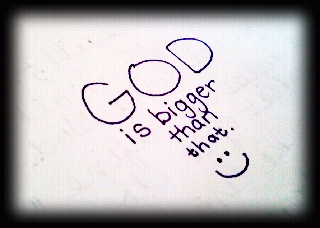 GOD
is bigger
than
that.